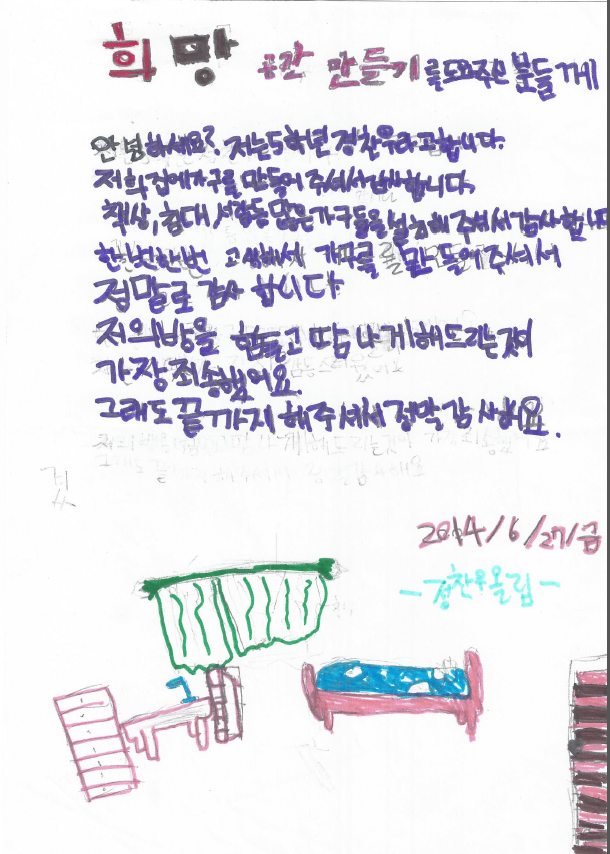 희망 공간 만들기를 도와주신 분들께
안녕하세요? 저는 5학년 정찬우라고합니다.
저희 집에 가구를 만들어 주셔서 감사합니다.
책상, 침대, 서랍등 많은 가구들을 설치해 주셔서 감사합니다
한번한번 고생해서 가구를 만들어주셔서
정말로 감사 합니다
저의방을 힘들고 땀 나게해드리는것이
가장 죄송했어요.
그래도 끝까지 해주셔서 정막 감사해요.
2014/6/27/금
-정찬우올림-